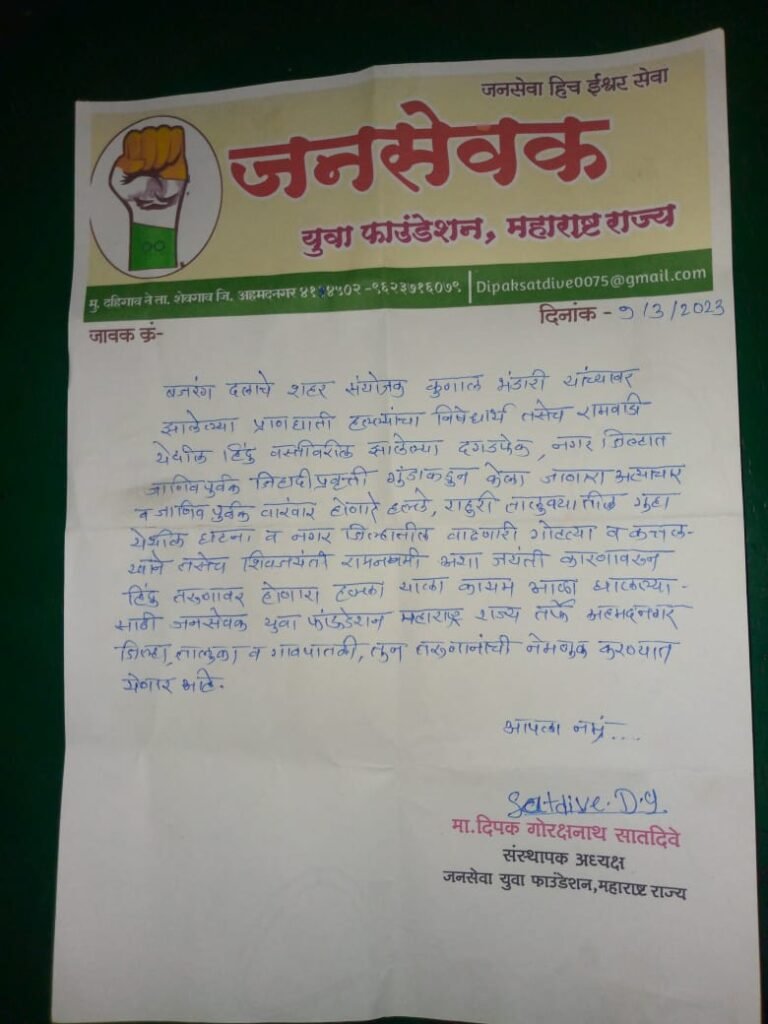 जनसेवा हिच ईश्वर सेवा
जनसेवक
युवा फाउंडेशन, महाराष्ट्र राज्य
मु. दहिगाव ने ता. शेवगाव जि. अहमदनगर ४१४५०२ -९६२३७१६०७९ Dipaksatdive0075@gmail.com
दिनांक - 9/3/2023
जावक क्रं-
बजरंग दलाचे शहर संयोजक कुणाल भंडारी यांच्यावर
झालेल्या प्राणघाती हल्ल्यांचा निषेधार्थ तसेच रामवाडी
येथील हिंदु वस्तीवरील झालेल्या दगडफेक, नगर जिल्हात
जाणिवपुर्वक जिहादी प्रवृत्ती गुंडाकडुन केला जाणारा अत्याचार
व जाणिवपुर्वक वारंवार होणारे हल्ले, राहुरी तालुक्यातील गुहा
येथील घटना व नगर जिल्हातील वाढणारी गोहत्या व कत्तल-
खाने तसेच शिवजयंती रामनवमी अशा जयंती कारणावरुन
हिंदु तरुणावर होणारा हल्ला याला कायम आळा घालण्या-
साठी जनसेवक युवा फांऊडेशन महाराष्ट्र राज्य तर्फे अहमदनगर
जिल्हा, तालुका व गावपातळी, तुन तरुणानांची नेमणुक करण्यात
येणार आहे.
आपला नम्रं....
Satdive.D.G.
मा.दिपक गोरक्षनाथ सातदिवे
संस्थापक अध्यक्ष
जनसेवा युवा फाउंडेशन,महाराष्ट्र राज्य